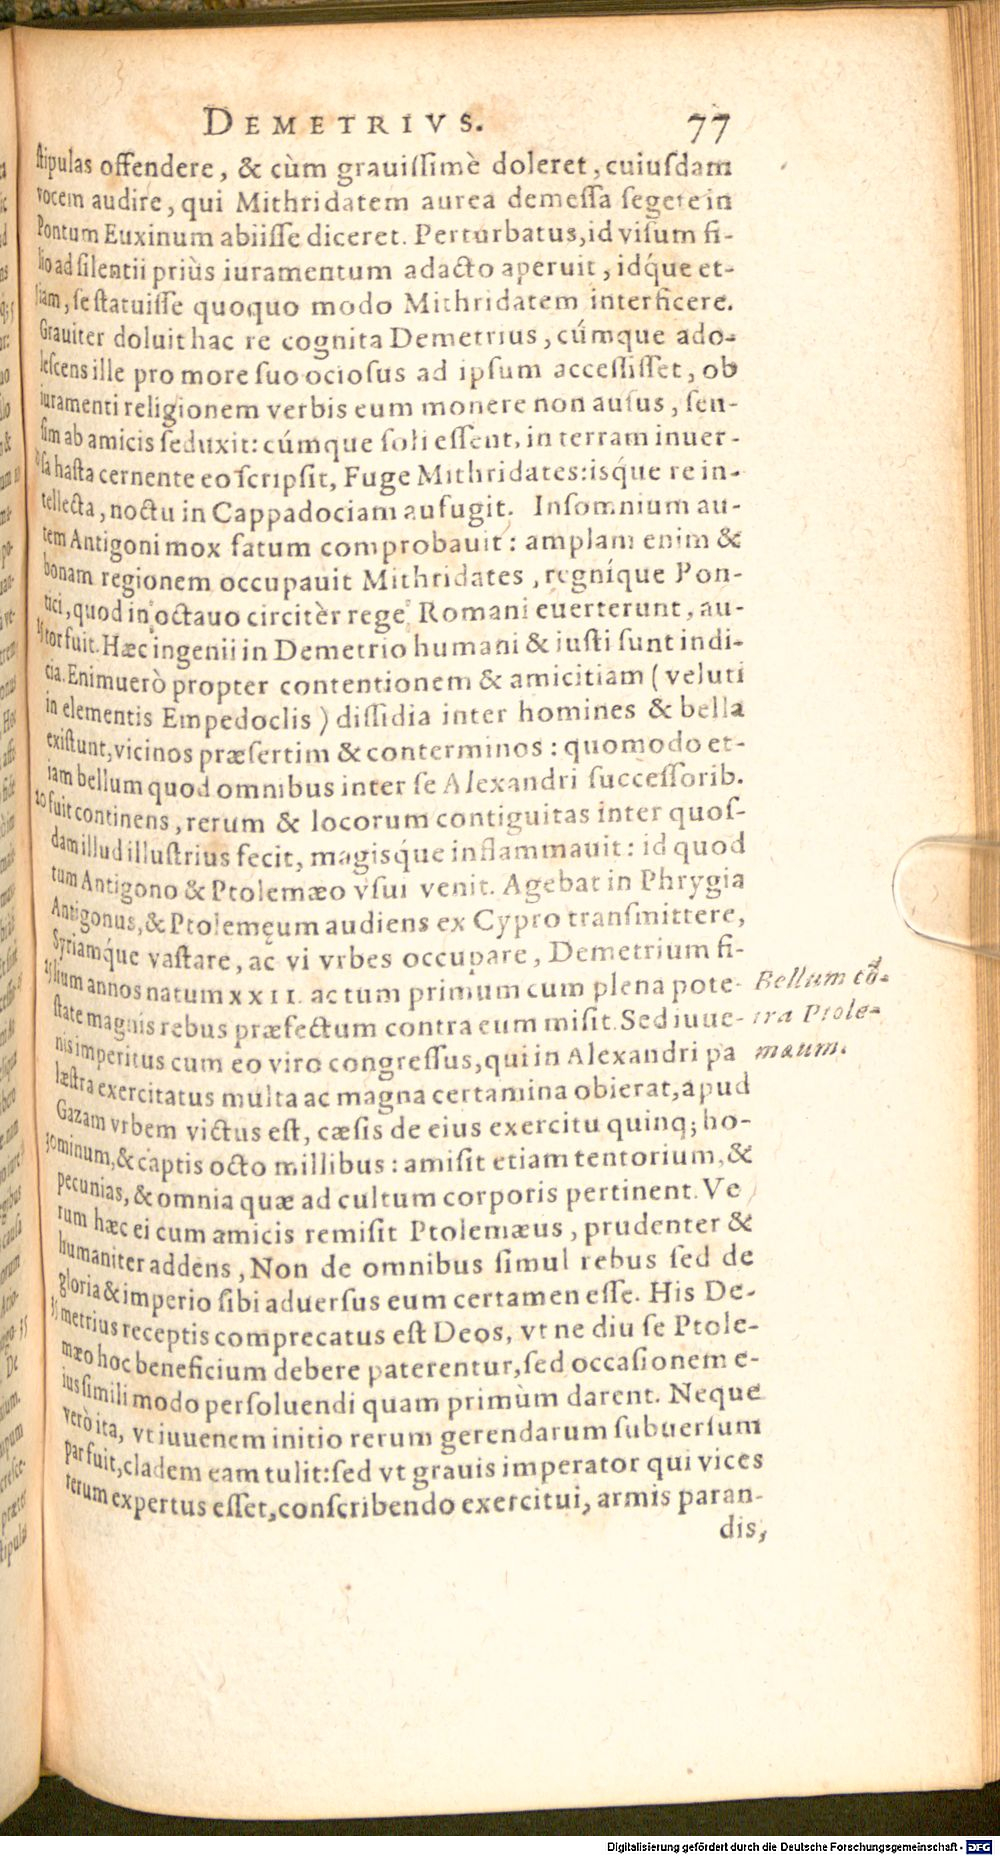 DEMETRIVS. 77
stipulas offendere, & cùm grauissimè doleret, cuiusdam
vocem audire, qui Mithridatem aurea demessa segete in
Pontum Euxinum abiisse diceret. Perturbatus, id visum fi-
lio ad silentii priùs iuramentum adacto aperuit, idq́ue et-
iam, se statuisse quoquo modo Mithridatem interficere.
Grauiter doluit hac re cognita Demetrius, cúmque ado-
lescens ille pro more suo ociosus ad ipsum accessisset, ob
iuramenti religionem verbis eum monere non ausus, sen-
sim ab amicis seduxit: cúmque soli essent, in terram inuer-
10 sa hasta cernente eo scripsit, Fuge Mithridates: isq́ue re in-
tellecta, noctu in Cappadociam aufugit. Insomnium au-
tem Antigoni mox fatum comprobauit: amplam enim &
bonam regionem occupauit Mithridates, regníque Pon-
tici, quod in octauo circitèr rege Romani euerterunt, au-
15 tor fuit. Hæc ingenii in Demetrio humani & iusti sunt indi-
cia. Enimuerò propter contentionem & amicitiam (veluti
in elementis Empedoclis) dissidia inter homines & bella
existunt, vicinos præsertim & conterminos: quomodo et-
iam bellum quod omnibus inter se Alexandri successorib.
20 fuit continens, rerum & locorum contiguitas inter quos-
dam illud illustrius fecit, magisq́ue inflammauit: id quod
tum Antigono & Ptolemæo vsui venit. Agebat in Phrygia
Antigonus, & Ptolemęum audiens ex Cypro transmittere,
Syriamq́ue vastare, ac vi vrbes occupare, Demetrium fi-
25 lium annos natum XXII. ac tum primum cum plena pote-
state magnis rebus præfectum contra eum misit. Sed iuue-
nis imperitus cum eo viro congressus, qui in Alexandri pa
læstra exercitatus multa ac magna certamina obierat, apud
Gazam vrbem victus est, cæsis de eius exercitu quinq; ho-
30 minum, & captis octo millibus: amisit etiam tentorium, &
pecunias, & omnia quæ ad cultum corporis pertinent. Ve
rum hæc ei cum amicis remisit Ptolemæus, prudenter &
humaniter addens, Non de omnibus simul rebus sed de
gloria & imperio sibi aduersus eum certamen esse. His De-
35 metrius receptis comprecatus est Deos, vt ne diu se Ptole-
mæo hoc beneficium debere paterentur, sed occasionem e-
ius simili modo persoluendi quam primùm darent. Neque
verò ita, vt iuuenem initio rerum gerendarum subuersum
par fuit, cladem eam tulit: sed vt grauis imperator qui vices
rerum expertus esset, conscribendo exercitui, armis paran-
dis,
Bellum cō-
tra Ptole-
mæum.
Digitalisierung gefördert durch die Deutsche Forschungsgemeinschaft - DFG